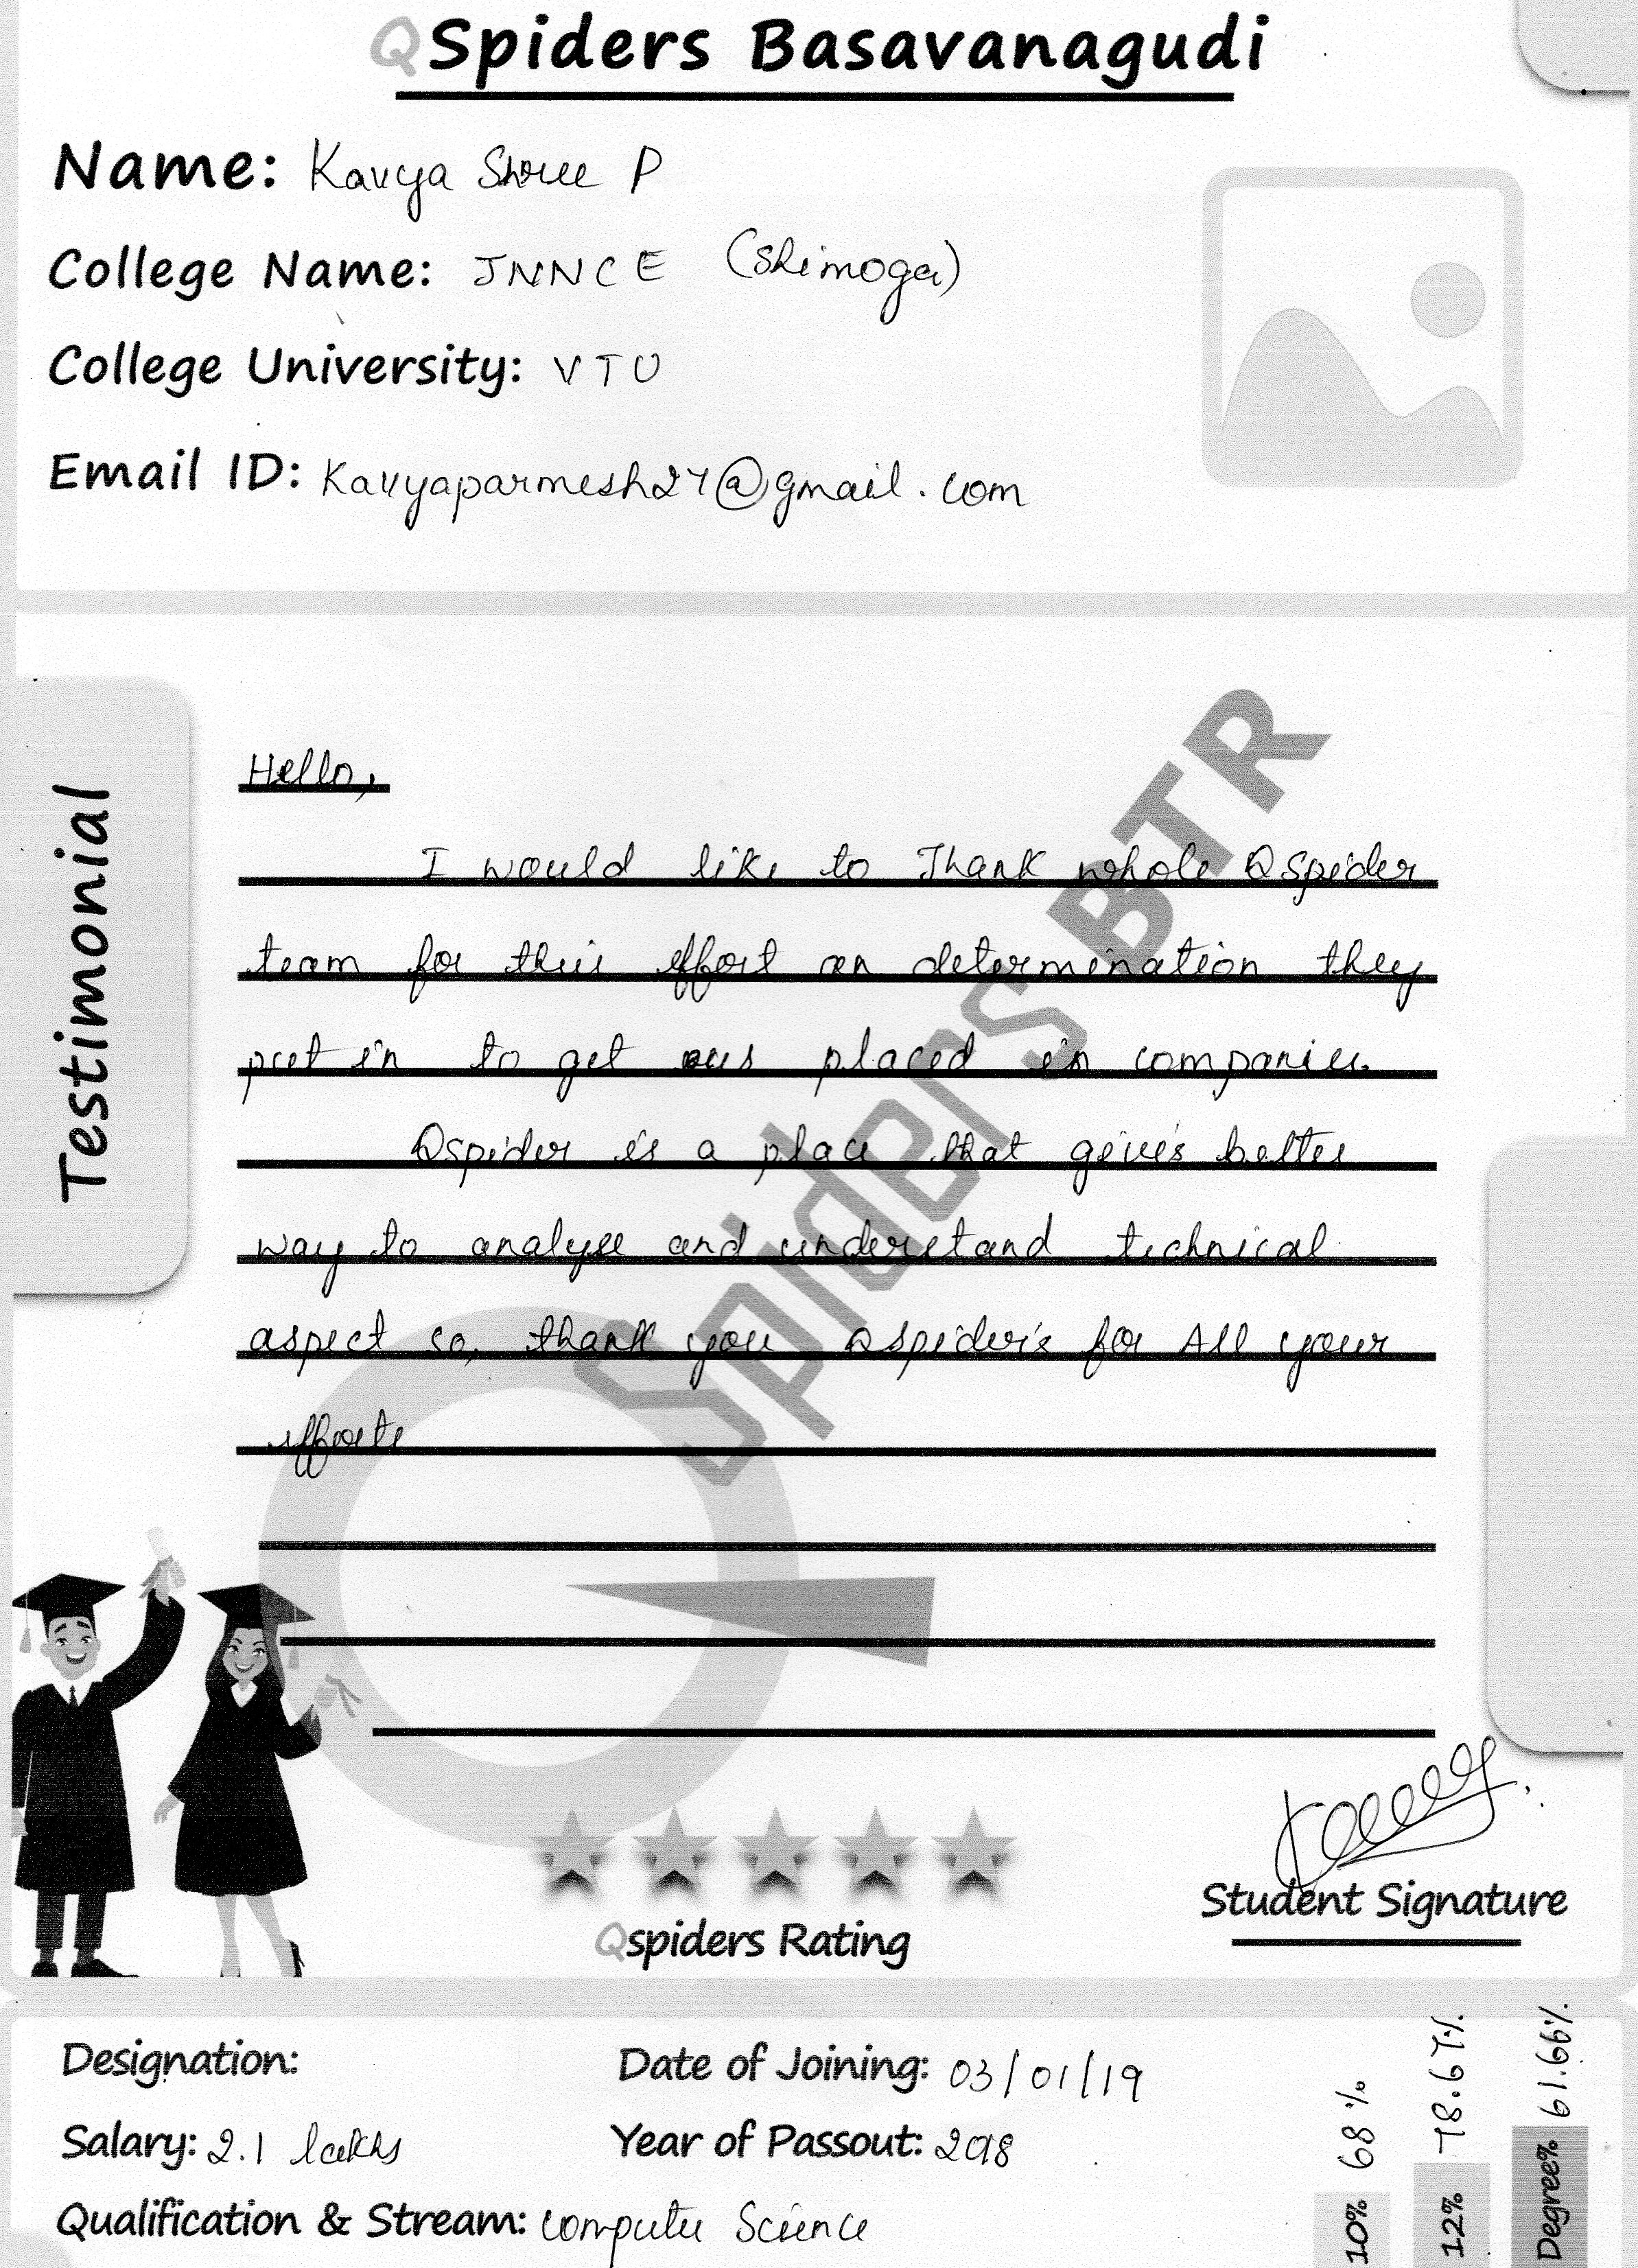 QSpiders Basavanagudi
Name: Kavya Shree P
College Name: JNNCE (Shimoga)
College University: VTU
Email ID: Kavyaparmesh27@gmail.com
Testimonial
Hello,
I would like to Thank whole QSpider
team for their effort an determination they
put in to get us placed in companies.
Qspider is a place that give's better
way to analyse and understand technical
aspect so, thank you Qspider's for All your
efforts
QSpiders BTR
Student Signature
Qspiders Rating
Designation:
Date of Joining: 03/01/19
Salary: 2.1 lakhs
Year of Passout: 2018
Qualification & Stream: Computer Science
10% 68%
12% 78.67%
Degree% 61.66%